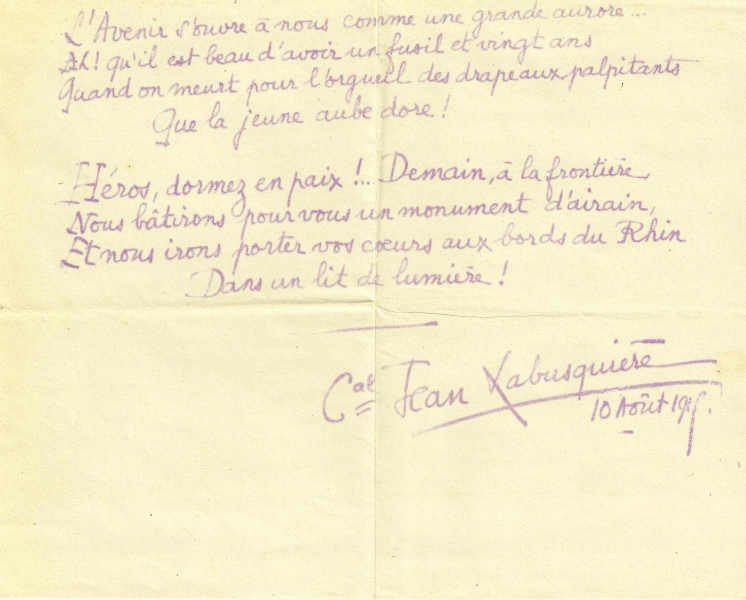 L'Avenir s'ouvre à nous comme une grande aurore...
Ah! qu'il est beau d'avoir un fusil et vingt ans
Quand on meurt pour l'orgueil des drapeaux palpitants
Que la jeune aube dore!
Héros, dormez en paix!... Demain, à la frontière,
Nous bâtirons pour vous un monument d'airain,
Et nous irons porter vos cœurs aux bords du Rhin
Dans un lit de lumière!
Cal Jean Labusquière
10 Août 1915.